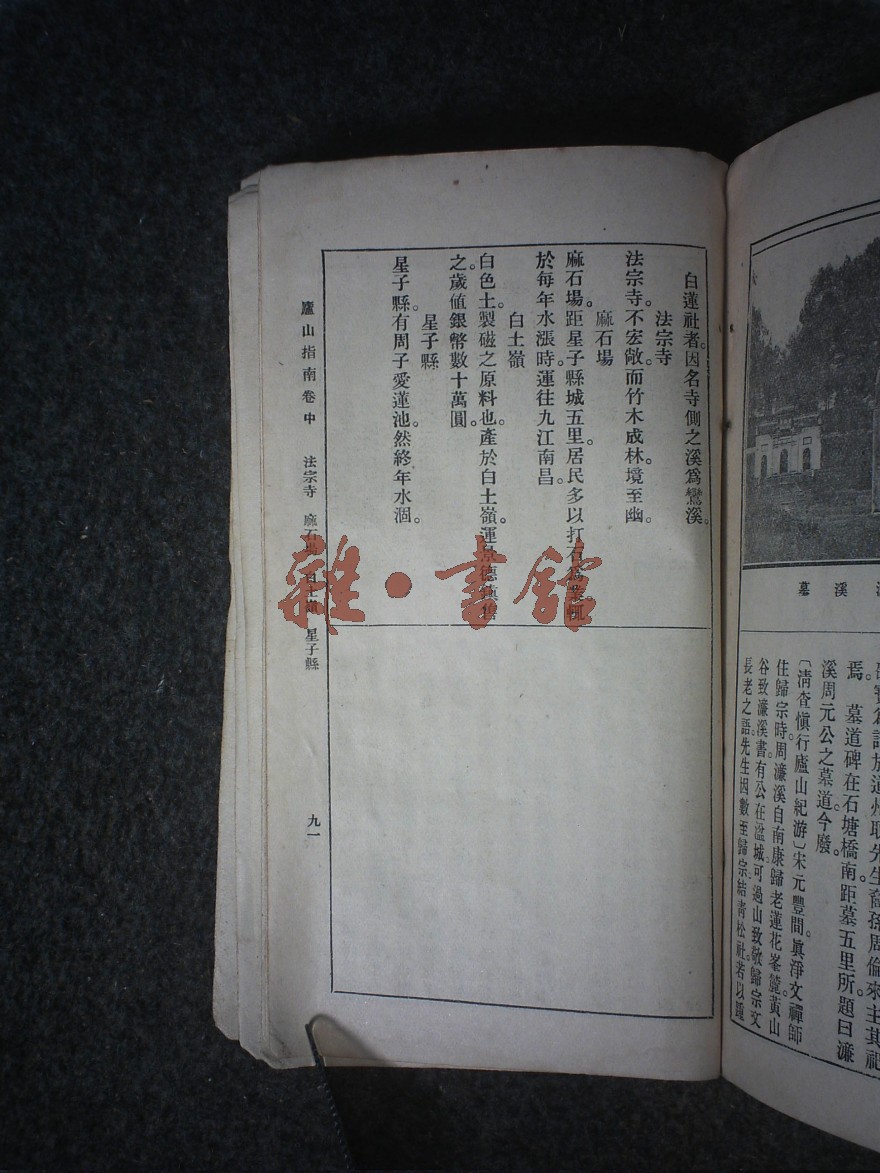 溪墓
道州取先生裔孫周倫來主其祀
焉。墓道碑在石塘橋南。距墓五里。所題曰濂
溪周元公之墓道。今廢。
〔淸查愼行廬山紀游〕宋元豐間。眞淨文禪師
住歸宗時。周濂溪自南康歸老蓮花峯麓。黃山
谷致濂溪書。有公在湓城。可過山致敬歸宗文
長老之語。先生因數至歸宗。結靑松社。若以踵
白蓮社者。因名寺側之溪爲鸞溪。
法宗寺
法宗寺。不宏敞。而竹木成林。境至幽。
麻石場
麻石場。距星子縣城五里。居民多以打石爲業。輒
於每年水漲時。運往九江南昌。
白土嶺
白色土。製磁之原料也。產於白土嶺。運景德鎮售
之。歲値銀幣數十萬圓。
星子縣
星子縣。有周子愛蓮池。然終年水涸。
廬山指南卷中 法宗寺 麻石場 白土嶺 星子縣 九一
雜·書館